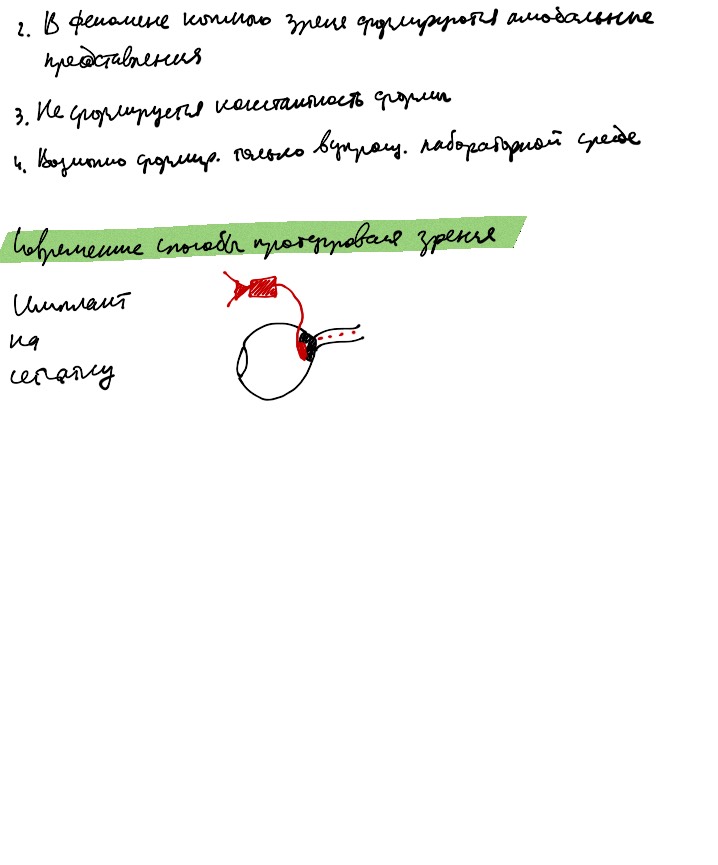 2. В феномене кожного зрения формируются амодальные
представления
3. Не формируется константность формы
4. Возможно формир. только в упрощ. лабораторной среде
Современные способы протезирования зрения
Имплант
на
сетчатку